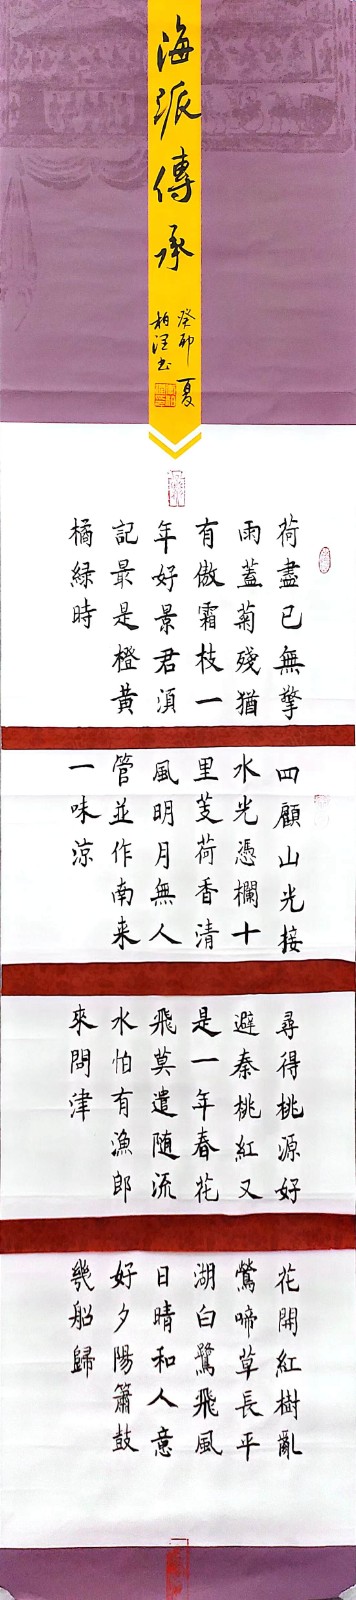 海派傳承
癸卯夏
柏涇書
荷盡已無擎
雨蓋菊殘猶
有傲霜枝一
年好景君須
記最是橙黃
橘緑時
四顧山光接
水光憑欄十
里芰荷香清
風明月無人
管並作南来
一味凉
尋得桃源好
避秦桃紅又
是一年春花
飛莫遣随流
水怕有漁郎
來問津
花開紅樹亂
鶯啼草長平
湖白鷺飛風
日晴和人意
好夕陽簫鼓
幾船歸